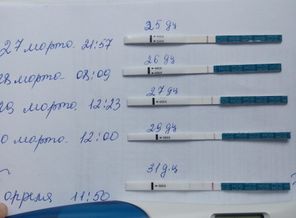 25 дц
27 марта. 21:57
26 дц
марта- 08:09
27 дц
марта. 12:23
29 дц
марта. 12:00
31 д.ц
апреля 11:50